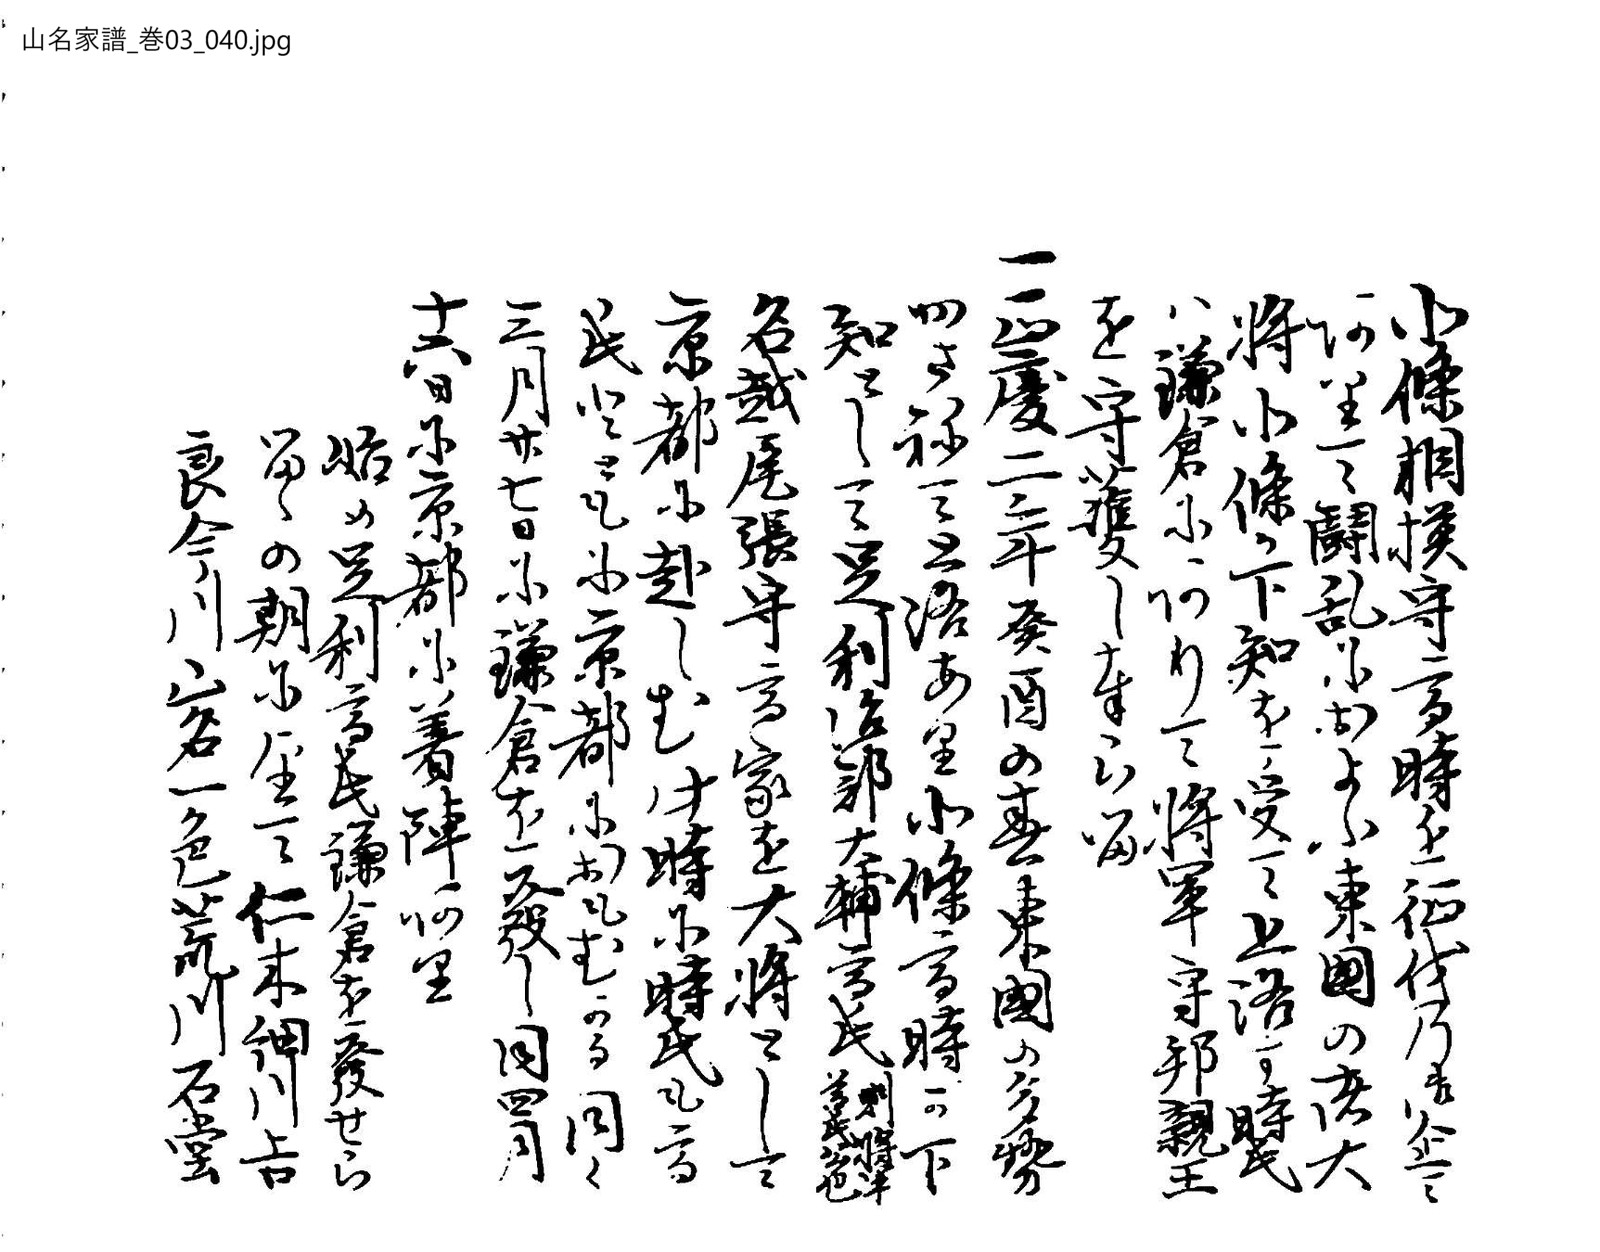 山名家譜_巻03_040.jpg
北條相模守高時を征伐乃御企て
阿里て闘乱におよふ東國の諸大
將北條の下知を受て上洛す時氏
ハ鎌倉に阿りて將軍守邦親王
を守護し奉らる
一正慶二年癸酉の春東國の多勢
かさねて上洛あり北條高時の下
知として足利治部大輔高氏
名越尾張守高家を大將として
京都に赴しむ此時に時氏も高
氏とともに京都におもむかる同く
三月廿七日に鎌倉を發し同四月
十六日に京都に着陣阿里
始め足利高氏鎌倉を發せら
るゝの朝に至て仁木細川吉
良今川山名一色荒川石堂